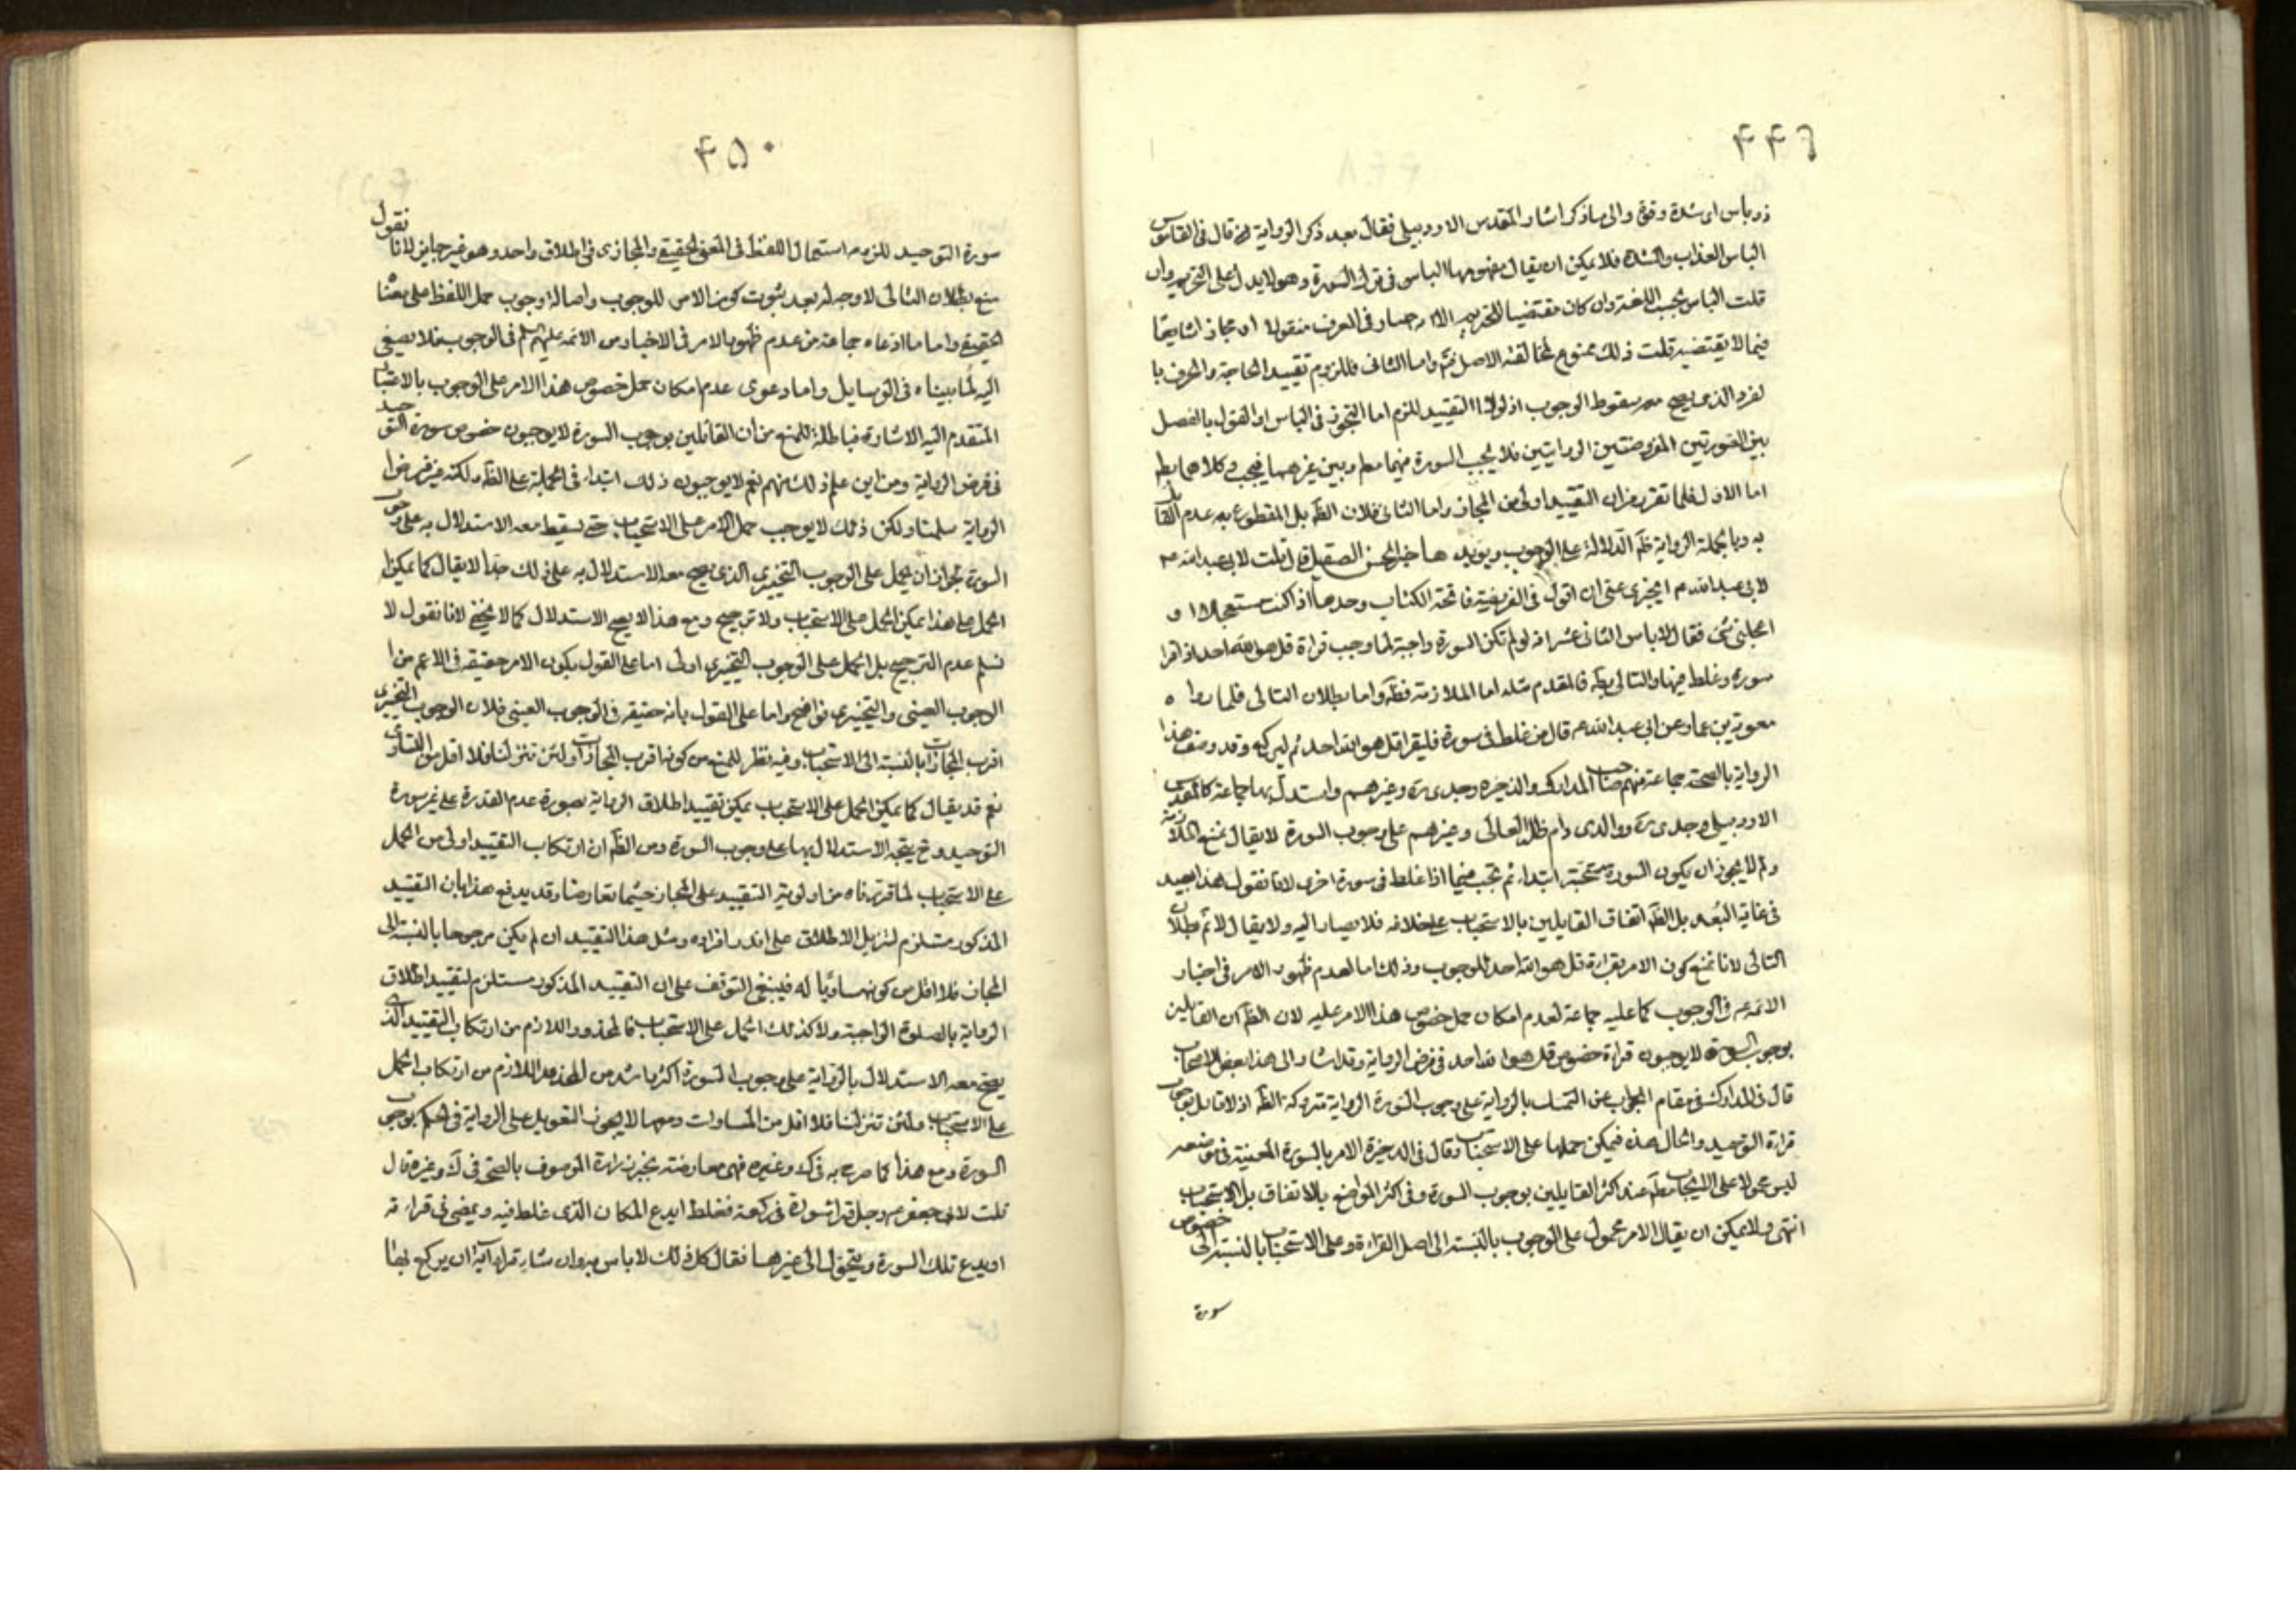 ۴۴۹
ذو باس اى شدة وقوة والى ما ذكر اشار المقدس الاردبيلى فقال بعد ذكر الرواية قال فى القاموس
الباس العذاب والشدة فلا يمكن ان يقال مفهومها الباس فى ترك السورة وهو لا يدل على التحريم وان
قلت الباس بحسب اللغة وان كان مقتضيا للتحريم الا انه صار فى العرف منقولا او مجازا شايعا
فيما لا يقتضيه قلت ذلك ممنوع لمخالفته الاصل ثم واما الثانى فللزوم تقييد الحاجة والخوف با
لفرد الذى يصح معه سقوط الوجوب اذ لولا التقييد للزم اما التجوز فى الباس او القول بالفصل
بين الصورتين المفروضتين الروايتين فلا يجب السورة فيهما معا وبين غيرهما فيجب وكلاهما بط
اما الاول فلما تقرر من ان التقييد اولى من المجاز واما الثانى فلان الظ بل المقطوع به عدم القائل
به وبالجملة الرواية ظ الدلالة على الوجوب ويؤيده خبر الحسن الصيقل قال قلت لابى عبد الله ع
لابى عبد الله ع ايجزى عنى ان اقول فى الفريضة فاتحة الكتاب وحدها اذا كنت مستعجلا او
اعجلنى شئ فقال لا باس الثانى عشر انه لو لم تكن السورة واجبة لما وجب قراءة قل هو الله احد اذا قرا
سورة وغلط فيها والتالى بط فالمقدم مثله اما الملازمة فظ واما بطلان التالى فلما رواه
معوية بن عمار عن ابى عبد الله ع قال من غلط فى سورة فليقرا قل هو الله احد ثم ليركع وقد وصف هذا
الرواية بالصحة جماعة منهم صاحب المدارك والذخيرة وجدى ره وغيرهم واستدل بها جماعة كالمقدس
الاردبيلى وجدى ره ووالدى دام ظله العالى وغيرهم على وجوب السورة لا يقال نمنع الملازمة
ولم لا يجوز ان يكون السورة مستحبة ابتداء ثم تجب فيما اذا غلط فى سورة اخرى لانا نقول هذا بعيد
فى غاية البعد بل الظ اتفاق القايلين بالاستحباب على خلافه فلا يصار اليه ولا يقال لا ثم بطلان
التالى لانا نمنع كون الامر بقراءة قل هو الله احد للوجوب وذلك اما لعدم ظهور الامر فى اخبار
الائمة ع فى الوجوب كما عليه جماعة لعدم امكان حمل خصوص هذا الامر عليه لان الظ ان القايلين
بوجوب السورة لا يوجبون قراءة خصوص قل هو الله احد فى فرض الرواية وقد اشار الى هذا بعض الاصحاب
قال فى المدارك فى مقام الجواب عن التمسك بالرواية على وجوب السورة الرواية متروكة الظ اذ لا قائل بوجوب
قراءة التوحيد والحال هذه فيمكن حملها على الاستحباب وقال فى الذخيرة الامر بالسورة المعينة فى موضعه
ليس محمولا على الايجاب مط عند اكثر القايلين بوجوب السورة وفى اكثر المواضع بالاتفاق بل الاستحباب
انتهى ولا يمكن ان يقال الامر محمول على الوجوب بالنسبة الى اصل القراءة وعلى الاستحباب بالنسبة الى خصوص
سورة
۴۵۰
سورة التوحيد للزومه استعمال اللفظ فى المعنى الحقيقى والمجازى فى اطلاق واحد وهو غير جايز لانا نقول
منع بطلان التالى لا وجه له بعد ثبوت كون الامر للوجوب واصالة وجوب حمل اللفظ على معناه
الحقيقى واما ما ادعاه جماعة من عدم ظهور الامر فى الاخبار من الائمة عليهم السلم فى الوجوب فلا يصغى
اليه لما بيناه فى الوسايل واما دعوى عدم امكان حمل خصوص هذا الامر على الوجوب بالاعتبار
المتقدم اليه الاشارة فباطلة للمنع من ان القائلين بوجوب السورة لا يوجبون خصوص سورة التوحيد
فى فرض الرواية ومن اين علم ذلك منهم نعم لا يوجبون ذلك ابتداء فى الجملة على الظ ولكنه غير فرض
الرواية سلمنا ولكن ذلك لا يوجب حمل الامر على الاستحباب حتى يسقط معه الاستدلال به على وجوب
السورة لجواز ان يحمل على الوجوب التخييرى الذى يصح معه الاستدلال به على ذلك جدا لا يقال كما يمكن
الحمل على هذا يمكن الحمل على الاستحباب ولا ترجيح ومع هذا لا يصح الاستدلال كما لا يخفى لانا نقول لا
نسلم عدم الترجيح بل الحمل على الوجوب التخييرى اولى اما على القول بكون الامر حقيقة فى الاعم من
الوجوب العينى والتخييرى فواضح واما على القول بانه حقيقة فى الوجوب العينى فلان الوجوب التخييرى
اقرب المجازات بالنسبة الى الاستحباب وفيه نظر للمنع من كونه اقرب المجازات ولئن تنزلنا فلا اقل من التساوى
نعم قد يقال كما يمكن الحمل على الاستحباب يمكن تقييد اطلاق الرواية بصورة عدم القدرة على غير سورة
التوحيد وح يتجه الاستدلال بها على وجوب السورة ومن الظ ان ارتكاب التقييد اولى من الحمل
على الاستحباب لما قررناه من اولوية التقييد على المجاز حيثما تعارضا وقد يدفع هذا بان التقييد
المذكور مستلزم لتنزيل الاطلاق على اندر افراده ومثل هذا التقييد ان لم يكن مرجوحا بالنسبة الى
المجاز فلا اقل من كونه مساويا له فينبغى التوقف على ان التقييد المذكور مستلزم لتقييد اطلاق
الرواية بالصلوة الواجبة ولا كذلك الحمل على الاستحباب فالمحذور اللازم من ارتكاب التقييد الذى
يصح معه الاستدلال بالرواية على وجوب السورة اكثر واشد من المحذور اللازم من ارتكاب الحمل
على الاستحباب ولئن تنزلنا فلا اقل من المساوات ومعها لا يجوز التعويل على الرواية فى الحكم بوجوب
السورة ومع هذا كما صرح به فى ك وغيره فهى معارضة بخبر زرارة الموصوف بالصحة فى ك وغيره قال
قلت لابى جعفر ع رجل قرا سورة فى ركعة فغلط ايدع المكان الذى غلط فيه ويمضى فى قراءته
او يدع تلك السورة ويتحول الى غيرها فقال كل ذلك لا باس به وان شاء قرا آية ان يركع بها